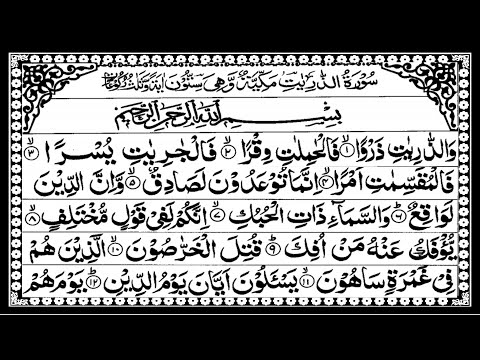 سُوْرَةُ الذّٰرِيٰتِ مَكِّيَّةٌ وَّهِيَ سِتُّوْنَ اٰيَةً وَّثَلٰثُ رُكُوْعَاتٍ
بِسْمِ اللّٰهِ الرَّحْمٰنِ الرَّحِيْمِ
وَالذّٰرِيٰتِ ذَرْوًا ۝۱ فَالْحٰمِلٰتِ وِقْرًا ۝۲ فَالْجٰرِيٰتِ يُسْرًا ۝۳
فَالْمُقَسِّمٰتِ اَمْرًا ۝۴ اِنَّمَا تُوْعَدُوْنَ لَصَادِقٌ ۝۵ وَّاِنَّ الدِّيْنَ
لَوَاقِعٌ ۝۶ وَالسَّمَآءِ ذَاتِ الْحُبُكِ ۝۷ اِنَّكُمْ لَفِيْ قَوْلٍ مُّخْتَلِفٍ ۝۸
يُّؤْفَكُ عَنْهُ مَنْ اُفِكَ ۝۹ قُتِلَ الْخَرّٰصُوْنَ ۝۱۰ الَّذِيْنَ هُمْ
فِيْ غَمْرَةٍ سَاهُوْنَ ۝۱۱ يَسْـَٔلُوْنَ اَيَّانَ يَوْمُ الدِّيْنِ ۝۱۲ يَوْمَ هُمْ